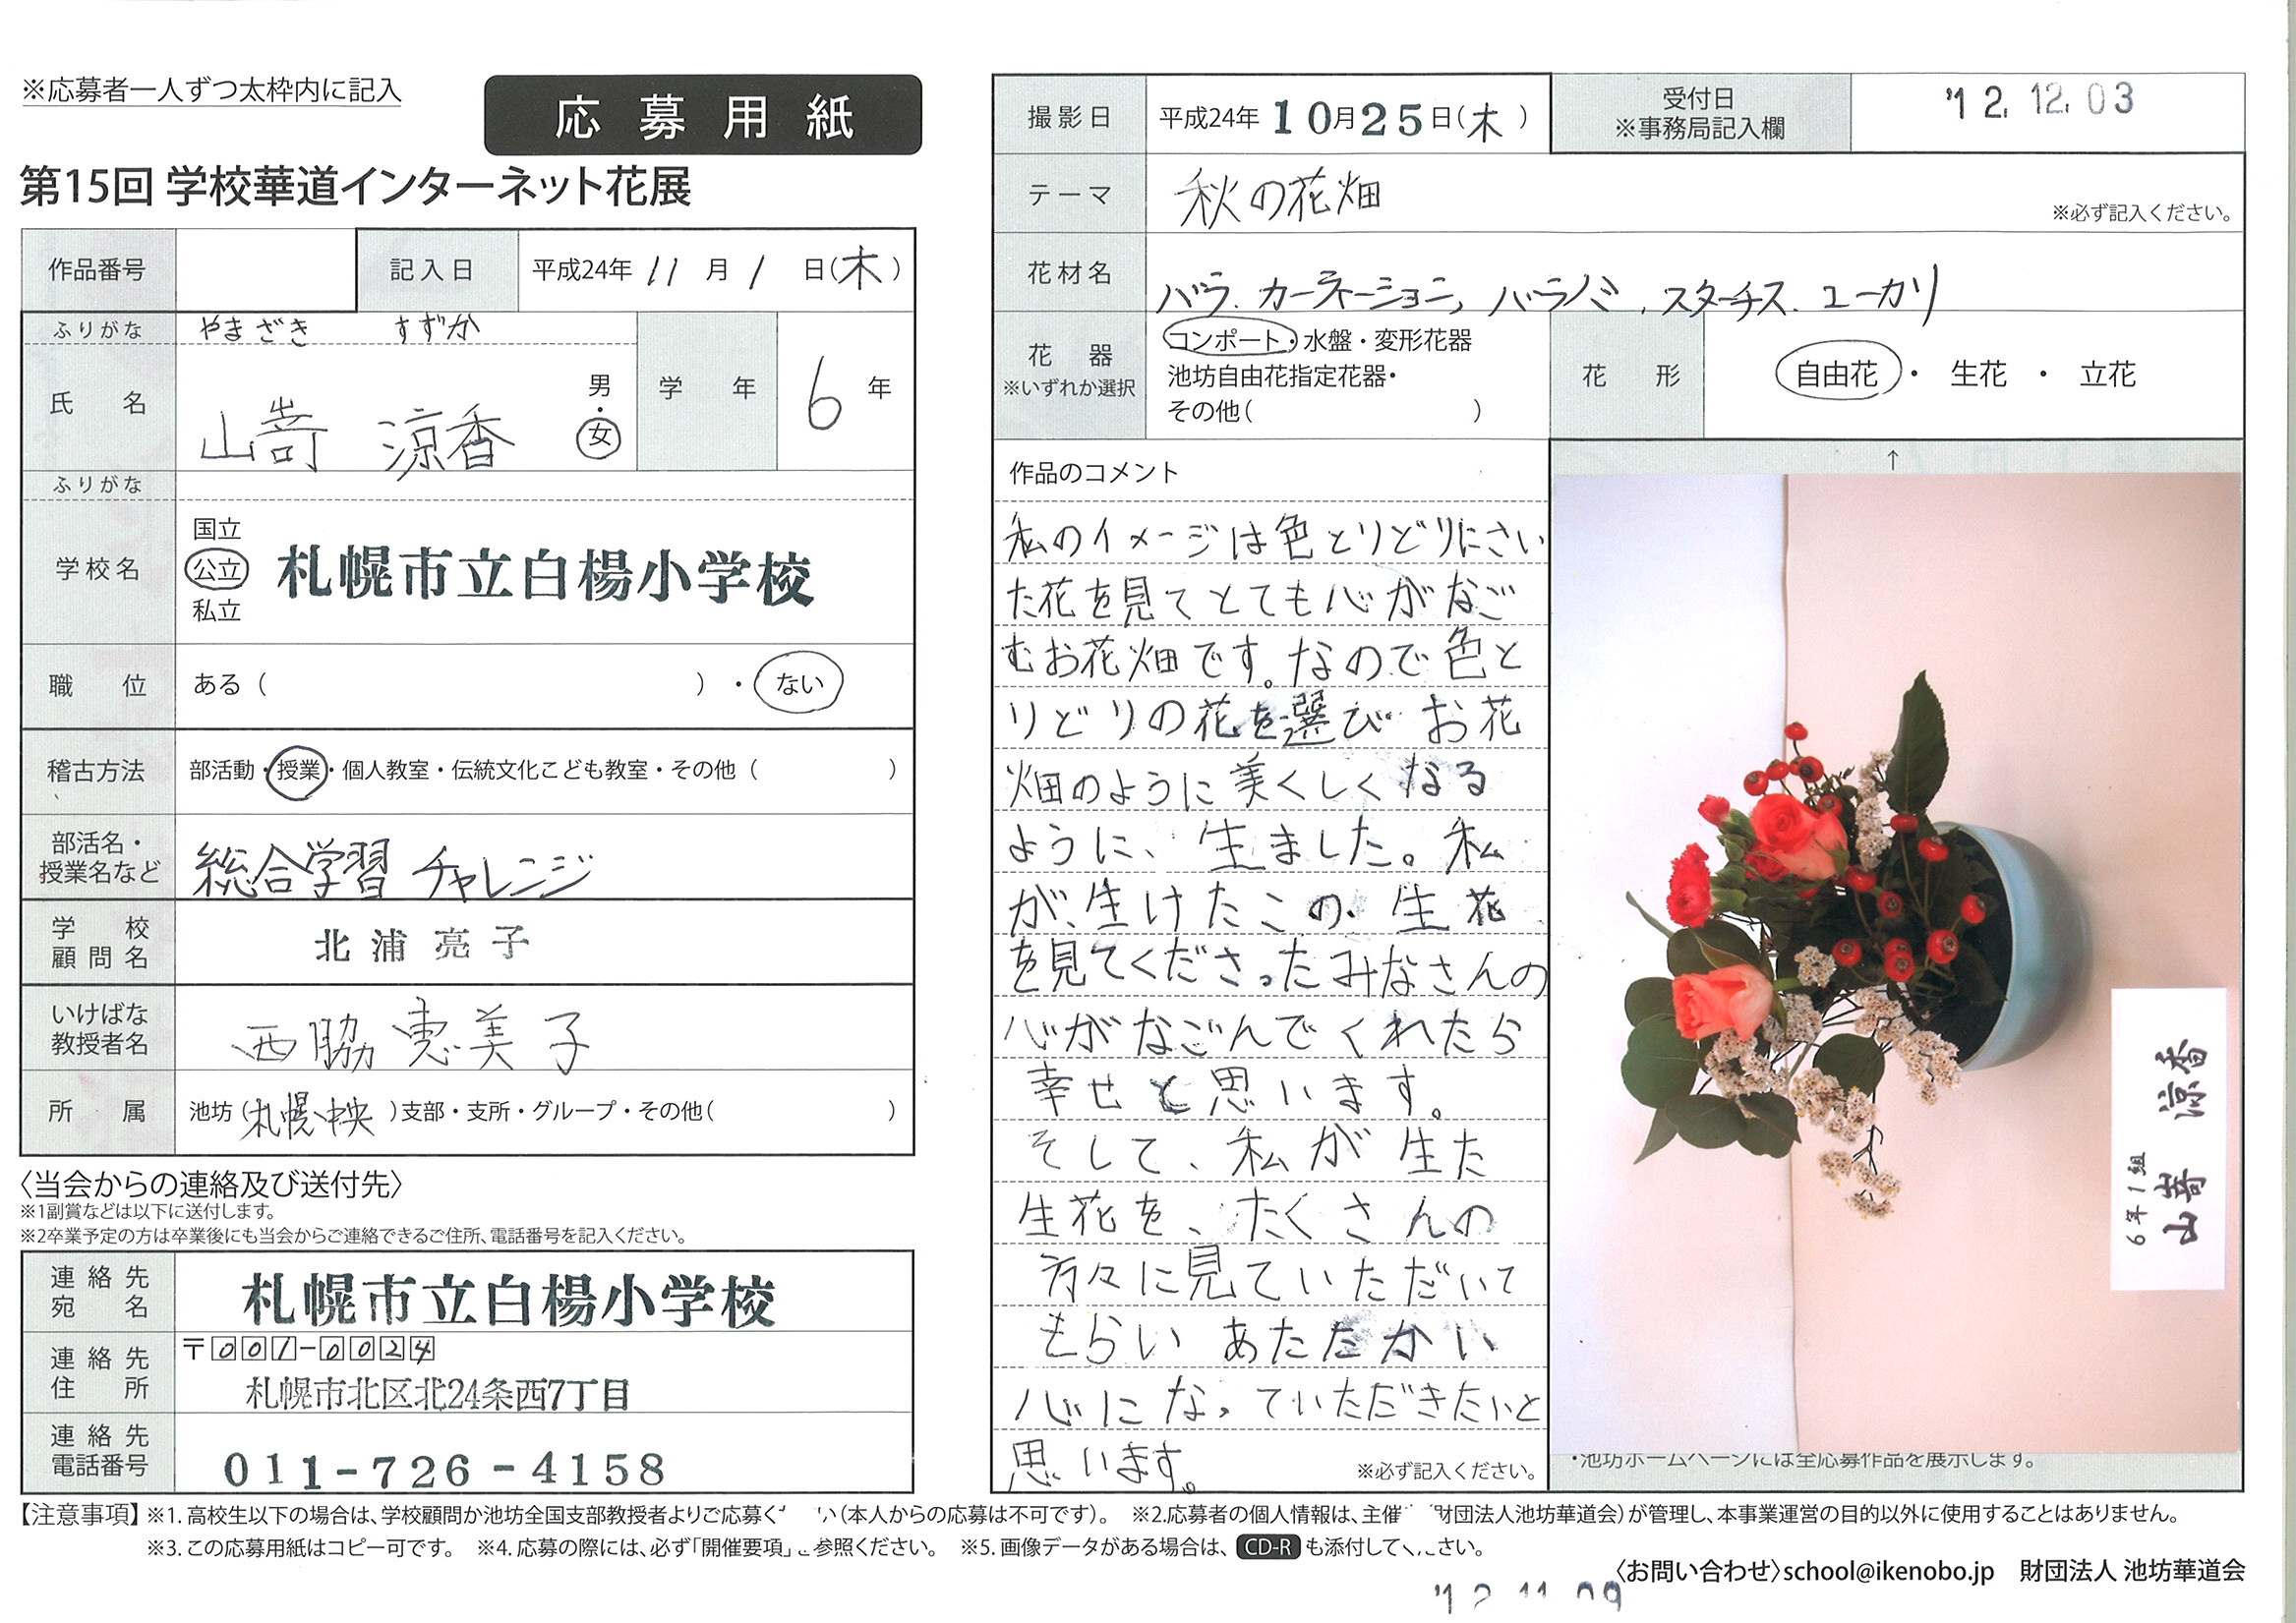 ※応募者一人ずつ太枠内に記入
応募用紙
第15回 学校華道インターネット花展
作品番号
記入日 平成24年 11月 1日(木)
ふりがな やまざき すずか
氏名 山嵜 涼香 男・女
学年 6年
ふりがな
学校名 国立 公立 私立 札幌市立白楊小学校
職位 ある( )・ない
稽古方法 部活動・授業・個人教室・伝統文化こども教室・その他( )
部活名・授業名など 総合学習 チャレンジ
学校顧問名 北浦亮子
いけばな教授者名 西脇恵美子
所属 池坊(札幌中央)支部・支所・グループ・その他( )
〈当会からの連絡及び送付先〉
※1副賞などは以下に送付します。
※2卒業予定の方は卒業後にも当会からご連絡できるご住所、電話番号を記入ください。
連絡先宛名 札幌市立白楊小学校
連絡先住所 〒001-0024
札幌市北区北24条西7丁目
連絡先電話番号 011-726-4158
撮影日 平成24年 10月25日(木)
受付日 ※事務局記入欄 '12.12.03
テーマ 秋の花畑 ※必ず記入ください。
花材名 バラ、カーネーション、バラノミ、スターチス、ユーカリ
花器 ※いずれか選択 コンポート・水盤・変形花器
池坊自由花指定花器・
その他( )
花形 自由花・生花・立花
作品のコメント
私のイメージは色とりどりにさい
た花を見てとても心がなご
むお花畑です。なので色と
りどりの花を選び お花
畑のように美くしくなる
ように、生ました。私
が、生けたこの生花
を見てくださったみなさんの
心がなごんでくれたら
幸せと思います。
そして、私が生た
生花を、たくさんの
方々に見ていただいて
もらい あたたかい
心になっていただきたいと
思います。
※必ず記入ください。
↑
6年1組
山嵜 涼香
・池坊ホームページには全応募作品を展示します。
【注意事項】※1. 高校生以下の場合は、学校顧問か池坊全国支部教授者よりご応募く い(本人からの応募は不可です)。 ※2.応募者の個人情報は、主催 財団法人池坊華道会)が管理し、本事業運営の目的以外に使用することはありません。
※3. この応募用紙はコピー可です。 ※4. 応募の際には、必ず「開催要項」ご参照ください。 ※5. 画像データがある場合は、CD-Rも添付して ださい。
〈お問い合わせ〉school@ikenobo.jp 財団法人 池坊華道会
'12 11 09